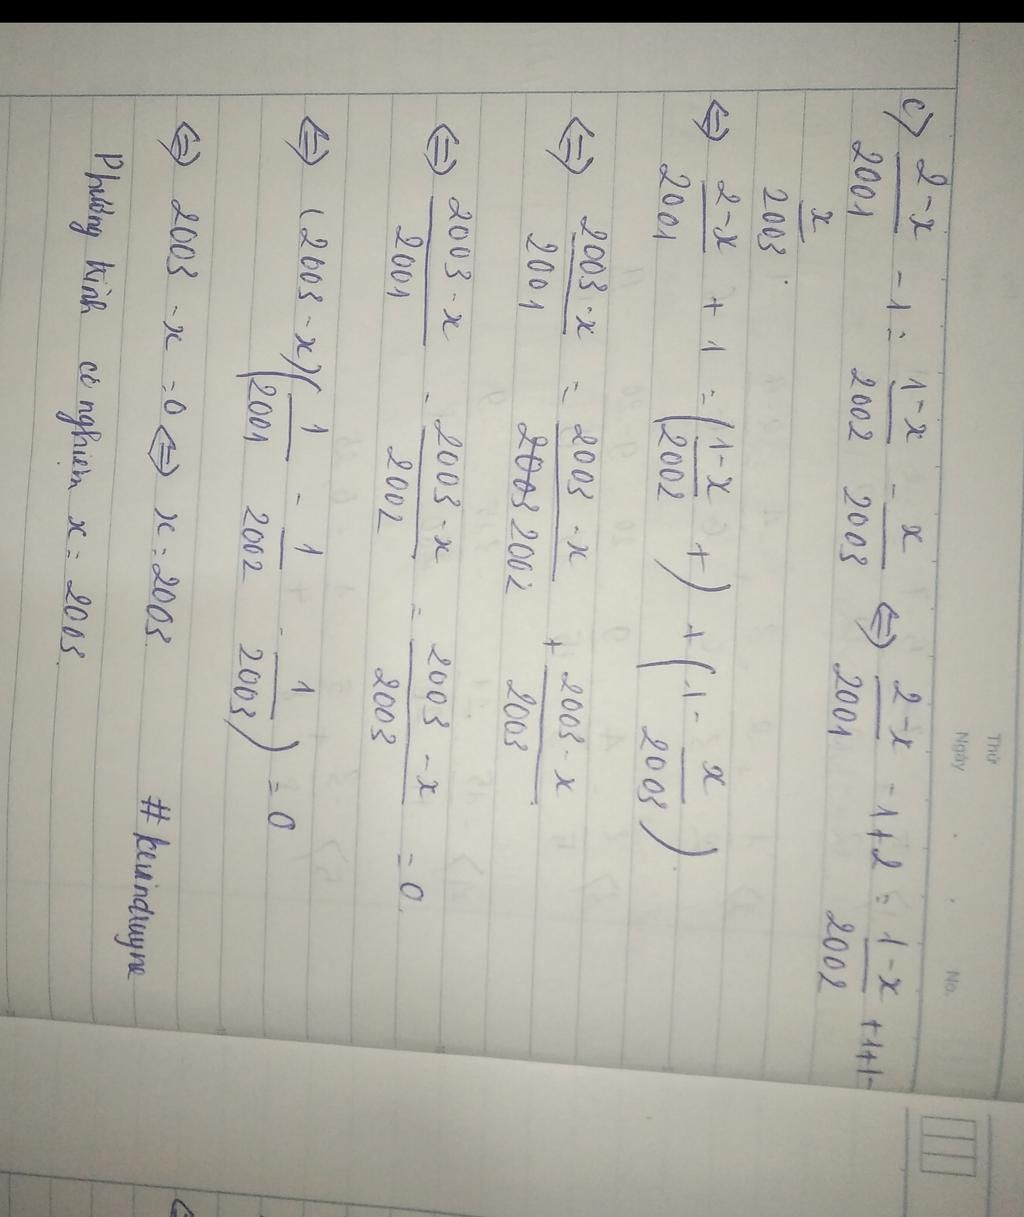 Thứ
Ngày . . No.
c) \frac{2-x}{2001} - 1 = \frac{1-x}{2002} - \frac{x}{2003} ⇔ \frac{2-x}{2001} - 1 + 2 = \frac{1-x}{2002} + 1 + 1 -
\frac{x}{2003}.
⇔ \frac{2-x}{2001} + 1 = (\frac{1-x}{2002} + ) + (1 - \frac{x}{2003})
⇔ \frac{2003-x}{2001} = \frac{2003-x}{2002} + \frac{2003-x}{2003}
⇔ \frac{2003-x}{2001} - \frac{2003-x}{2002} = \frac{2003-x}{2003} = 0.
⇔ (2003-x)(\frac{1}{2001} - \frac{1}{2002} - \frac{1}{2003}) = 0
⇔ 2003 - x = 0 ⇔ x = 2003
Phương trình có nghiệm x = 2003.